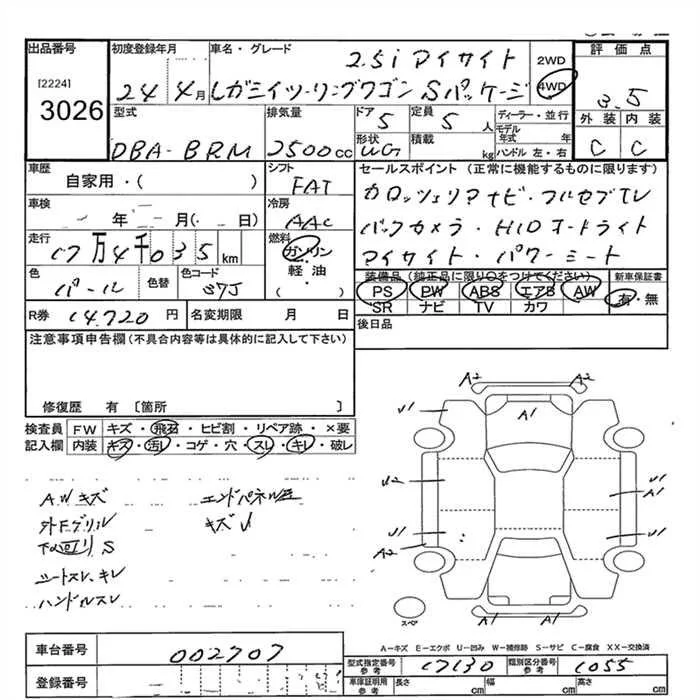 出品番号 初度登録年月 車名・グレード 2.5i アイサイト 2WD 評価点
[2224] 3026 24 4月 レガシィツーリングワゴン Sパッケージ 4WD 3.5
型式 排気量 ドア 5 定員 5人 ディーラー・並行 外装 内装
DBA-BRM 2500cc 形状 WG 積載 kg モデル年式 年 ハンドル 左・右 C C
車歴 シフト セールスポイント(正常に機能するものに限ります)
自家用・( ) FAT カロッツェリアナビ・フルセグTV
車検 年 月(・ 日) 冷房 AAC バックカメラ・HIDオートライト
走行 17万4千035km 燃料 ガソリン アイサイト・パワーシート
色 色替 色コード 軽油 装備品(純正品に限り〇をつけてください) 新車保証書
パール 37J ( ) PS PW ABS エアB AW 有・無
SR ナビ TV カワ
R券 14720円 名変期限 月 日 後日品
注意事項申告欄(不具合内容等は具体的に記入して下さい)
修復歴 有 〔箇所 〕
検査員 FW キズ・飛石・ヒビ割・リペア跡・×要
記入欄 内装 キズ・汚レ・コゲ・穴・スレ・キレ・破レ
AWキズ エンドパネル歪
外Fグリル キズ
下廻り S
シートスレ、キレ
ハンドルスレ
A2 A2
U1 A1 U1
U2 A1
U1 U1
A2
A1 A1
スペア
A-キズ E-エクボ U-凹み W-補修跡 S-サビ C-腐食 XX-交換済
車台番号 002707 型式指定番号 参考 17130 類別区分番号 参考 1055
登録番号 車庫証明用 参考 長さ cm 幅 cm 高さ cm